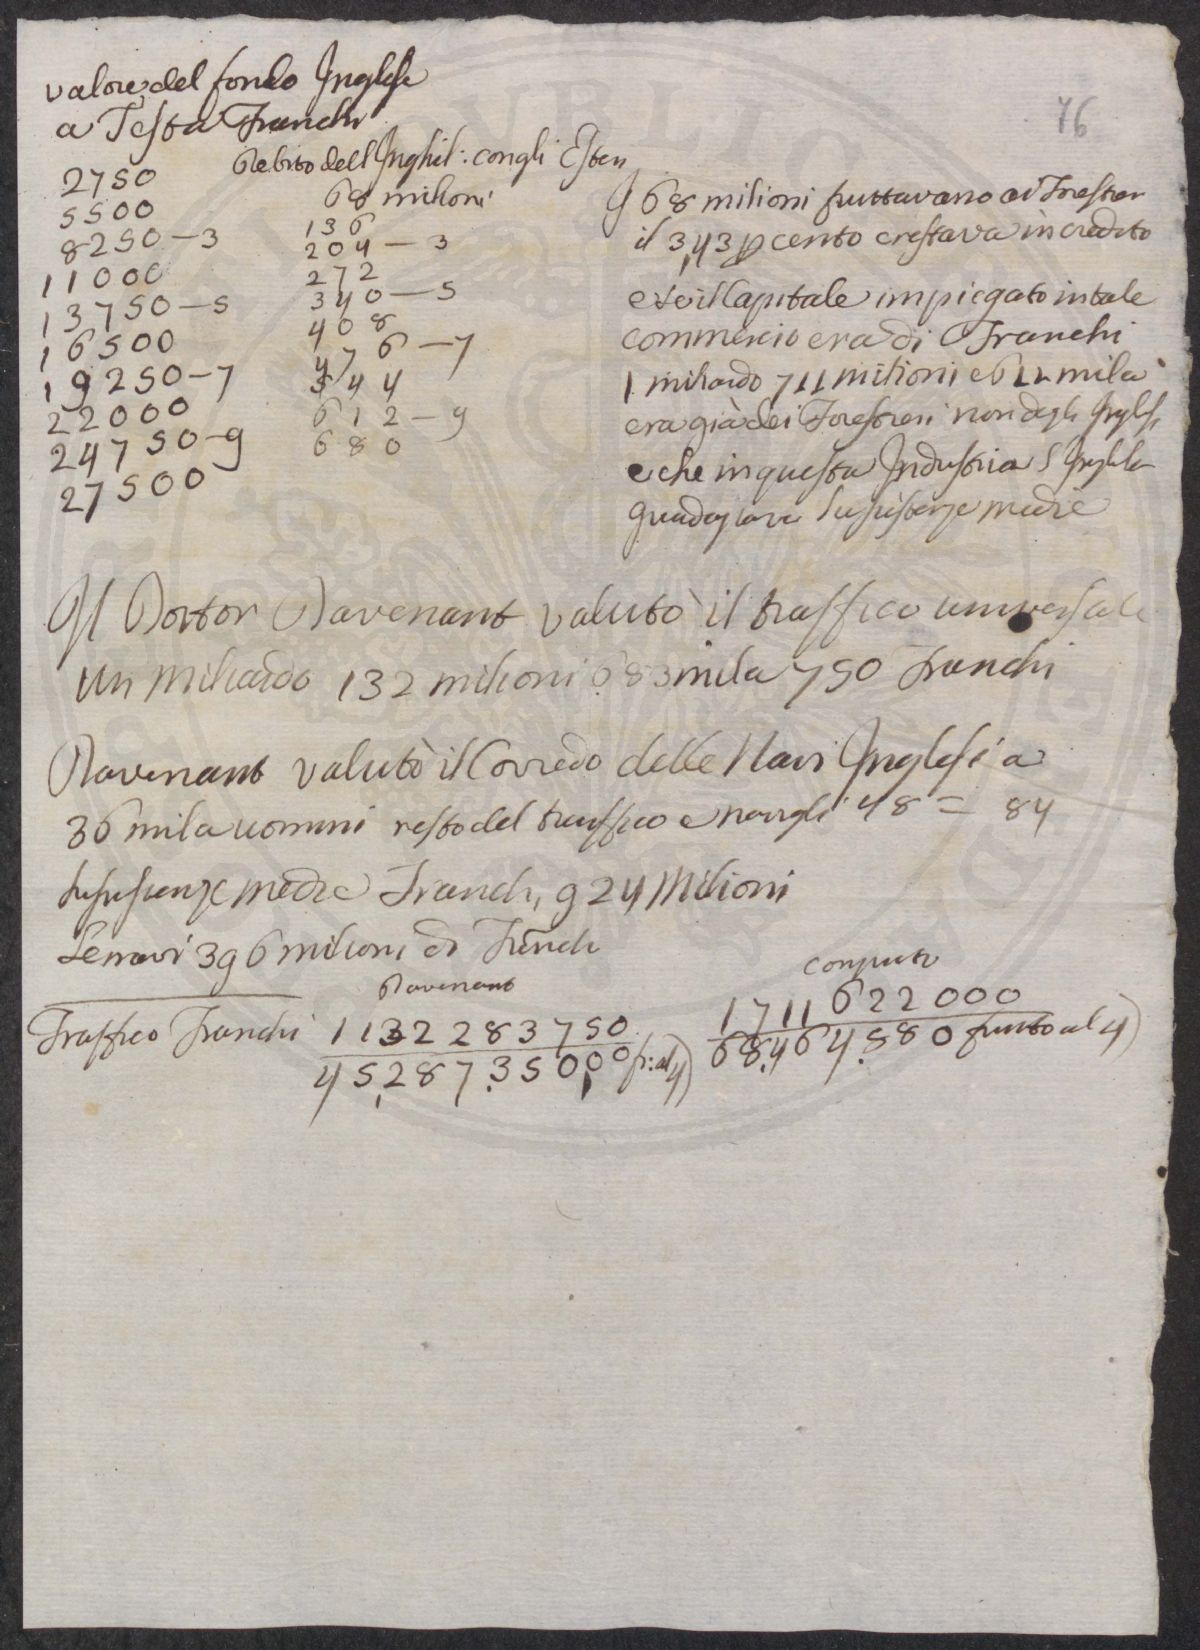 76
valore del fondo Inglese
a Testa Franchi
2750
5500
8250-3
11000
13750-5
16500
19250-7
22000
24750-9
27500
Debito dell Inghil: congli Esteri
68 milioni
136
204-3
272
340-5
408
476-7
544
612-9
680
I 68 milioni fruttavano ai Forestieri
il 3,43 p cento e restava in credito
e se il Capitale impiegato in tale
commercio era di Franchi
1 miliardo 711 milioni e 622 mila
era già dei Forestieri non degli Inglesi
e che in questa Industria l Inghila
guadagnava sussistenze medie
Il Dottor Davenant valutò il traffico universale
un miliardo 132 milioni 283 mila 750 Franchi
Davenant valutò il Corredo delle Navi Inglesi a
36 mila uomini resto del traffico e navigli 48 = 84
sussistenze medie Franchi 924 Milioni
Le navi 396 milioni di Franchi
Davenant
computo
Traffico Franchi 1132283750
4528735000 fr: al 4)
1711622000
68,464,580 frutto al 4)